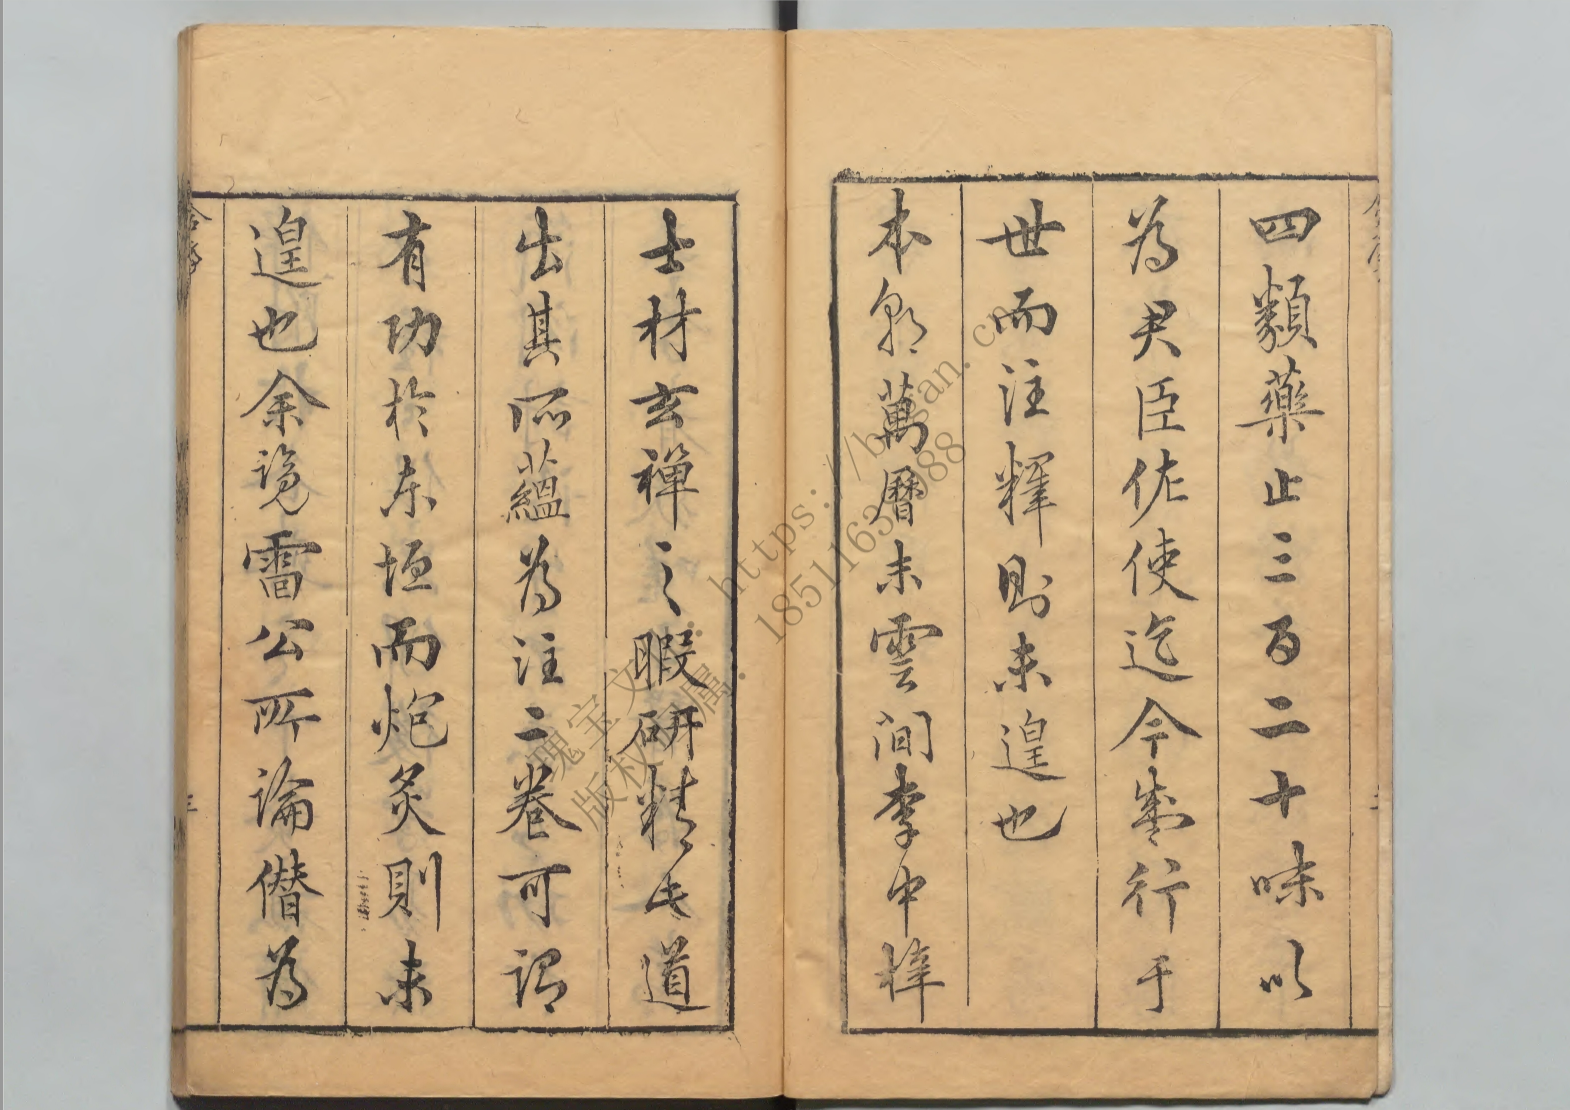 四類藥止三百二十味以
為君臣佐使迄今盛行于
世而注釋則未遑也
本朝萬曆末雲間李中梓
士材玄禪之暇研精此道
出其所蘊為注二卷可謂
有功於東垣而炮炙則未
遑也余覽雷公所論僭為
https://bogan.cn
18511633988
瑰宝文
版权 属: